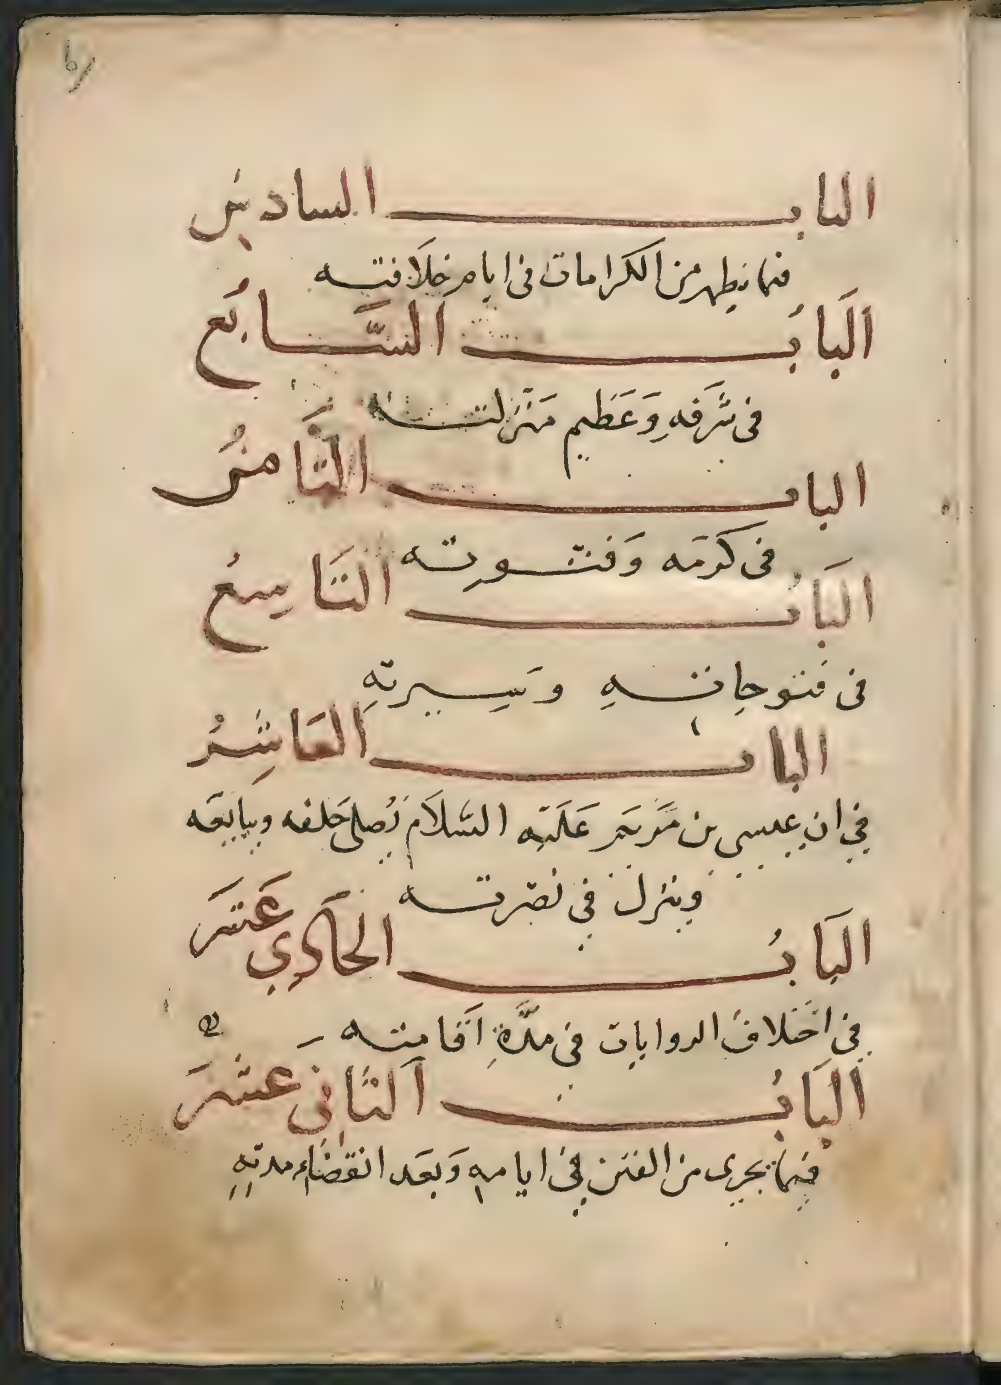 الباب السادس
فيما يظهر من الكرامات في ايام خلافته
اَلبَابُ السَّابُع
في شَرَفهِ وَعَظيم مَنْزلته
الباب الثَّامنُ
في كرمَه وَفتوته
البَابُ التَّاسِعُ
في فتوحاتهِ وسِيرتهِ
الباب العَاشِرُ
في ان عيسى بن مَريَم عَلَيْه السَّلاَم يُصلى خَلفه ويبَايعَه
وينزل في نصْرته
البَابُ الحَادِي عَشَر
في اختلاف الروايات في مدَّةِ اقامته
البَابُ الثاني عشَرَ
فيما يجرى من الفتن في ايامه وَبعَد انقضَاء مدتِهِ